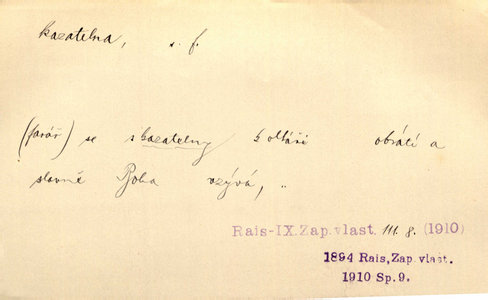 kazatelna, s. f.
(farář) se s kazatelny k oltáři obrátí a
slavně Boha vzývá, „
Rais-IX. Zap. vlast. III. 8. (1910)
1894 Rais, Zap. vlast.
1910 Sp. 9.